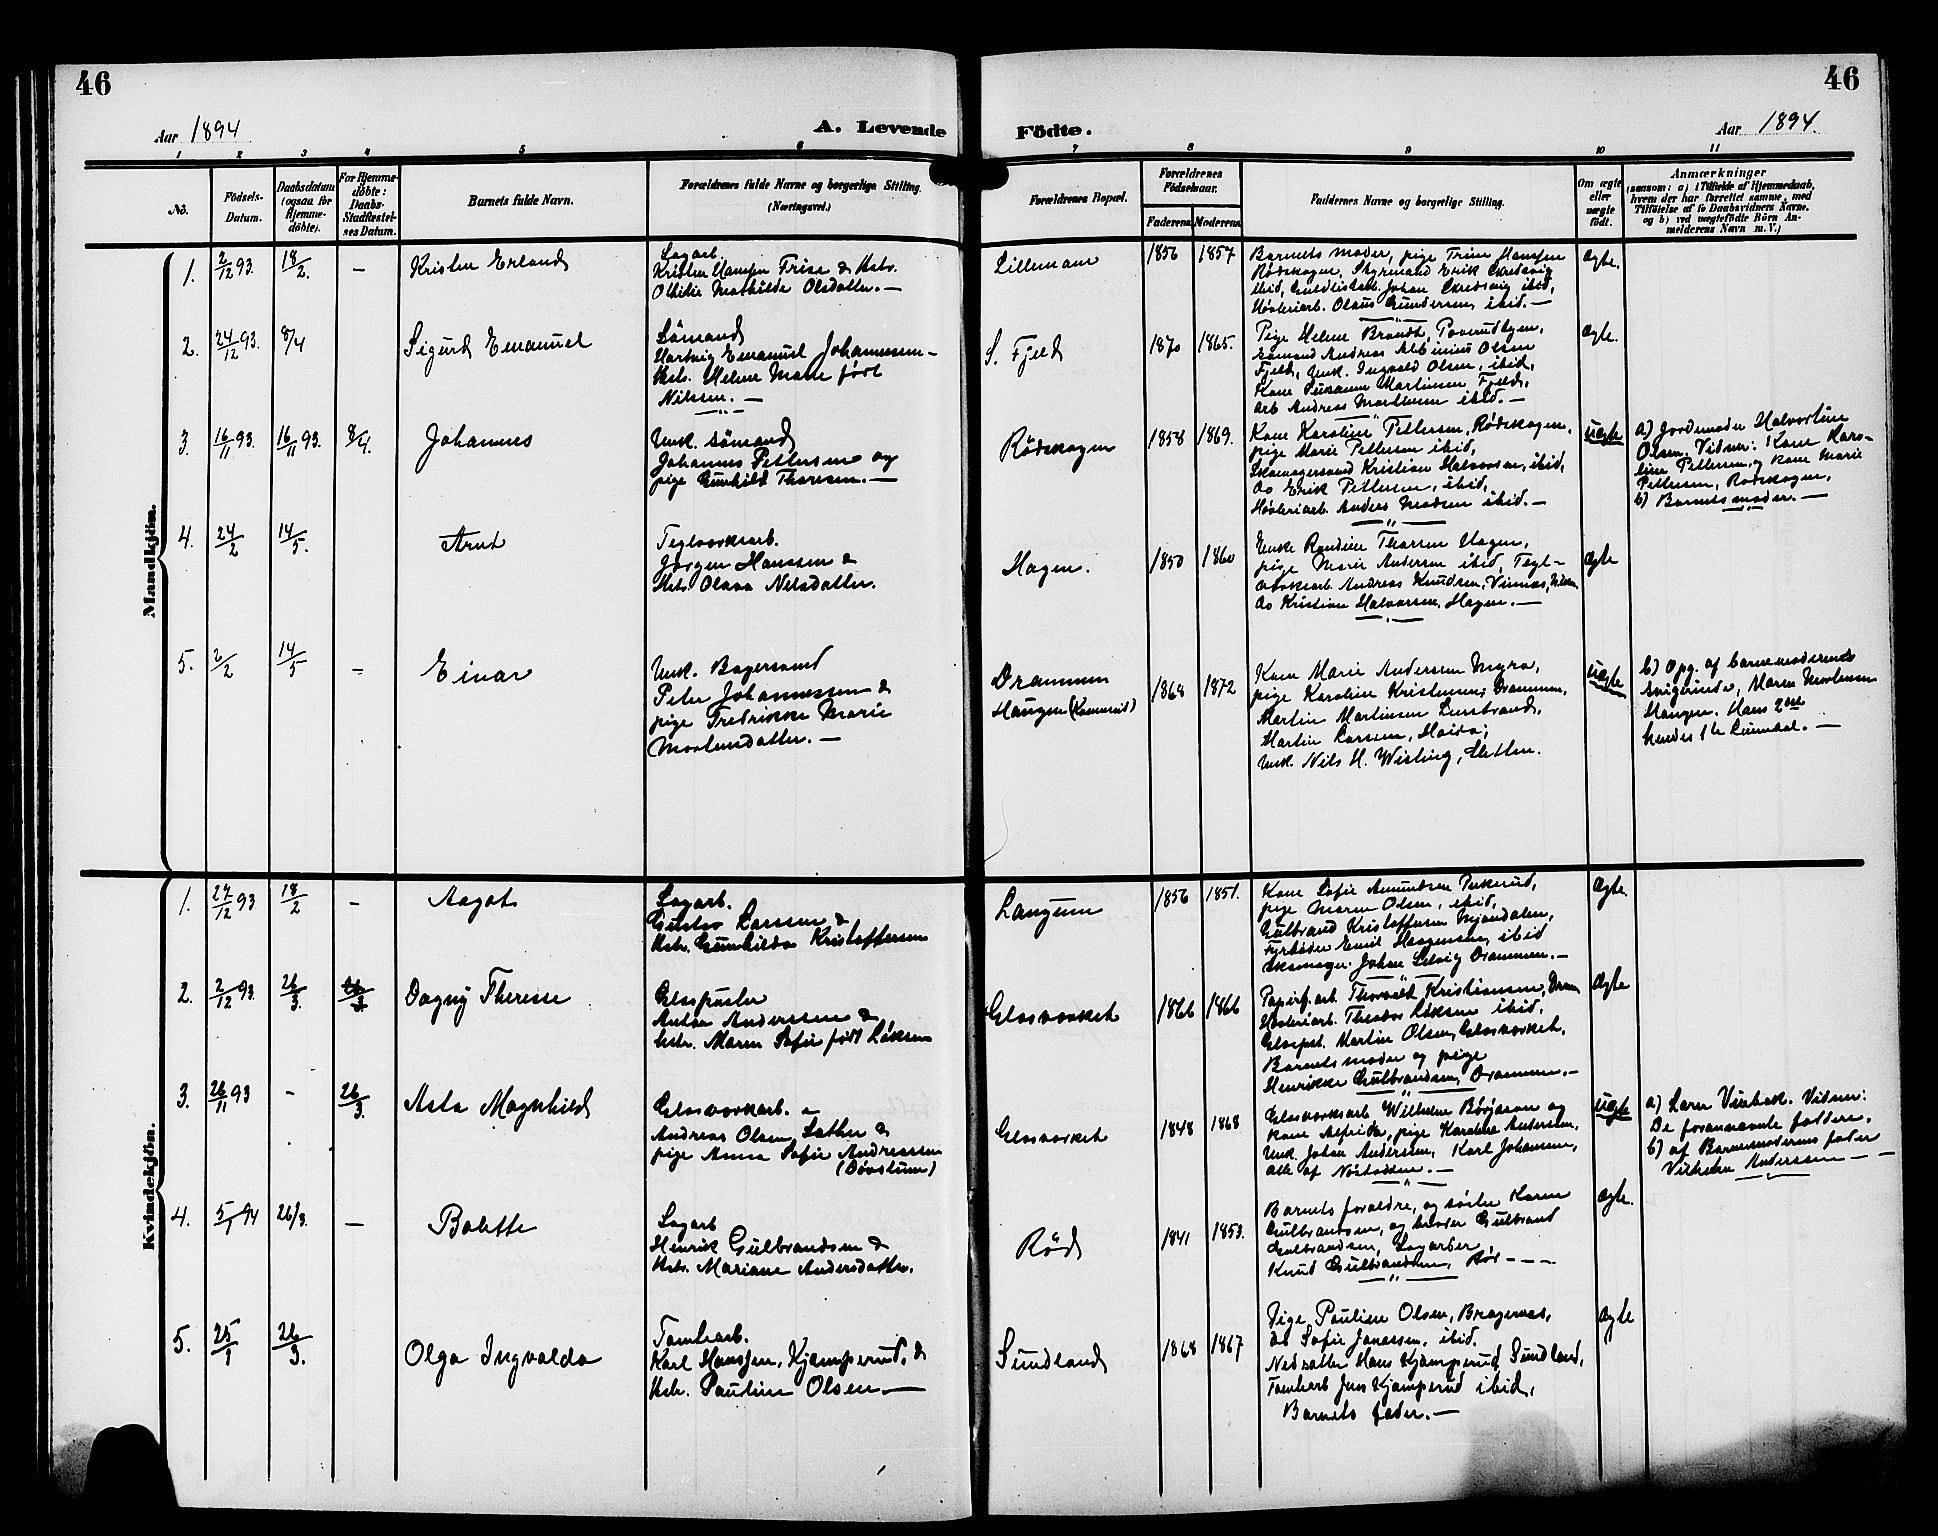 46
46
Aar 1894
A. Levende Födte.
Aar 1894.
1 2 3 4 5 6 7 8 9 10 11
No.
Födsels-Datum.
Daabsdatum (ogsaa for Hjemme-döbte).
For Hjemme-döbte: Daabs-Stadfæstel-ses Datum.
Barnets fulde Navn.
Forældrenes fulde Navne og borgerlige Stilling. (Næringsvei.)
Forældrenes Bopæl.
Forældrenes Födselsaar.
Faderens Moderens
Faddernes Navne og borgerlige Stilling.
Om ægte eller uægte födt.
Anmærkninger
(saasom: a) i Tilfælde af Hjemmedaab, hvem der har forrettet samme, med Tilföielse af to Daabsvidners Navne, og b) ved uægtefödte Börn Anmelderens Navn m. V.)
Mandkjön.
1. 2/12 93. 18/2. — Kristen Erland
Sagarb.
Kristen Hansen Frise & Hstr.
Mathilde Olsdatter. —
Lillemoen 1856 1857
Barnets moder, pige Trine Hansen
Rödskogen, Styrmand Erik
ibid, Johan ibid,
Høvleriarb. Olaus Gundersen, ibid. —
Ægte.
2. 24/12 93. 8/4 Sigurd Emanuel
Sömand
Hartvig Emanuel Johannessen —
Hstr. Helene Marie født
Nilssen. —
S. Fjeld 1870 1865.
Pige Helene Brandt,
sömand Andreas Albinius Olsen
Fjeld, Unk. Ingvald Olsen, ibid,
Kone Martinsen Fjeld,
arb Andreas Martinsen ibid. —
Ægte.
3. 16/11 93. 16/11 93. 8/4. Johannes
Unk. sömand
Johannes Pettersen og
pige Gunhild Thoresen. —
Rödskogen 1858 1869.
Kone Karoline Pettersen, Rödskogen,
pige Marie Pettersen ibid,
Skomagersvend Kristian Halvorsen, ibid,
Do Erik Pettersen, ibid,
Høvleriarb. Anders Madsen ibid. —
uægte
a) Jordmoder Halvorline
Olsen. Vidner: Kone Karo-
line Pettersen, og kone Marie
Pettersen, Rödskogen,
b) Barnets moder. —
4. 24/2 14/5. Arnt
Teglværksarb.
Jørgen Hanssen &
Hstr. Olava Nelsdatter.
Hagen. 1850 1860
Enke Randine Thorsen Hagen,
pige Marie Andersen ibid, Tegl-
værksarb Andreas Knudsen,
Do Kristian Halvorsen, Hagen. —
Ægte
5. 2/2 14/5 — Einar
Unk. Bagersvend
Peter Johannessen &
pige Fredrikke Marie
Mortensdatter. —
Drammen
Haugen 1868 1872
Kone Marie Anderssen Myra,
pige Karoline Kristensen, Drammen,
Martin Martinsen
Martin Larsen,
Unk. Nils H. Wisting,
uægte
b) Opg. af barnemoderens
Svigerinde, Maren Mortensen
Haugen. Hans 2det
hendes 1te Leiermaal. —
Kvindekjön.
1. 27/12 93 18/2 — Aagot
Sagarb.
Gustav Larssen &
Hstr. Gunhilda Kristoffersen
Langum 1856 1851.
Kone Sofie Amundsen
pige Maren Olsen, ibid,
Gulbrand Kristoffersen Mjøndalen,
Fyrbøder Emil Haagensen, ibid
Johan Drammen. —
Ægte.
2. 2/12 93. 26/3. 26/3 Dagny Therese
Glaspuster
Anton Anderssen &
Hstr. Maren Sofie født Løksen
Glasværket 1866 1866
Papirf.arb. Thorvald Kristiansen, Dram
Høvleriarb. Theodor Løksen ibid,
Glasp. Martin Olsen, Glasværket,
Barnets moder og pige
Henrikke Gulbrandsen, Drammen. —
Ægte
3. 26/11 93 – 26/3. Asta Magnhild
Glasværkarb. —
Andreas Olsen Sæther &
pige Anna Sofie Andreassen
(Døvstum)
Glasværket 1848 1868
Glasværksarb Wilhelm Børjeson og
kone Alfrida, pige Karoline Andersen,
Unk. Johan Andersen, Karl Johansen,
alle af Nøstodden. —
uægte
a) Lærer Vidner:
De forannævnte faddere,
b) af Barnemoderens fader
Vilhelm Anderssen — —
4. 5/1 94 26/3. — Bolette
Sagarb
Henrik Gulbrandsen &
Hstr. Mariane Andersdatter.
Röd 1841 1853.
Barnets foreldre, og søster Karen
Gulbrandsen, og broder Gulbrand
Gulbrandsen, Sagarbei
Knud Gulbrandsen, Röd – – –
Ægte.
5. 25/1 26/3. Olga Ingvalda
Tomtearb.
Karl Hanssen, Kjæmperud, &
Hstr. Pauline Olsen —
Sundland 1868 1867
Pige Pauline Olsen, Bragernæs,
do Sofie Janassen, ibid.
Hans Kjæmperud, Sundland,
Tomtearb Jens Kjæmperud ibid,
Barnets fader. —
Ægte